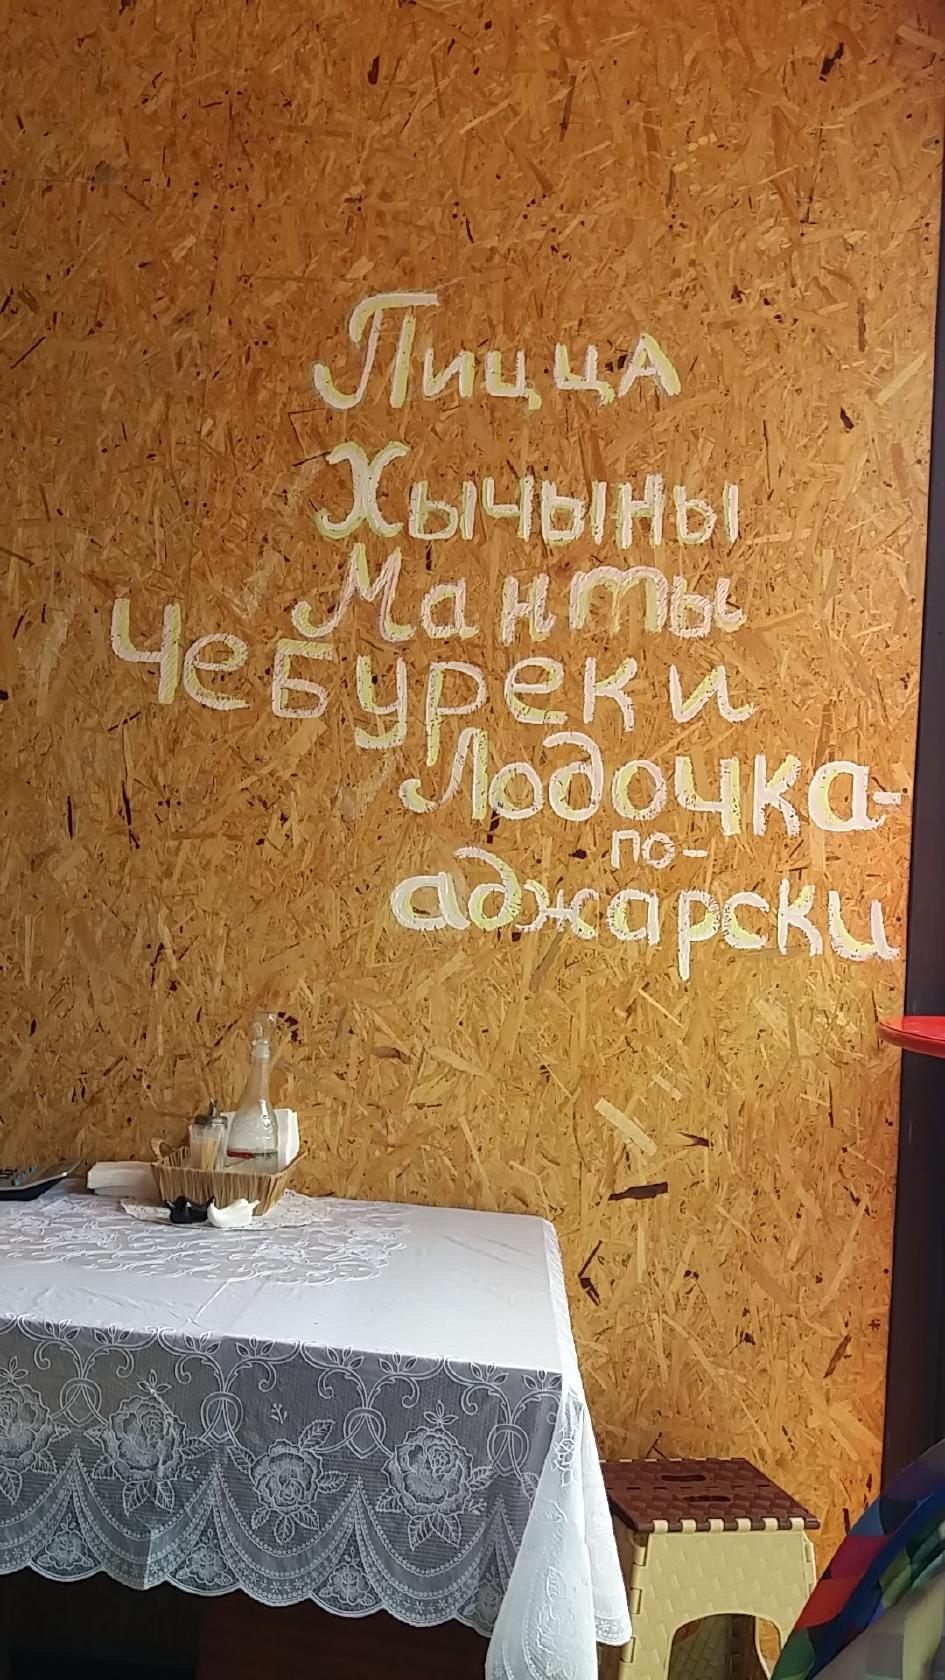 Пицца
Хычыны
Манты
Чебуреки
Лодочка-
по-
аджарски